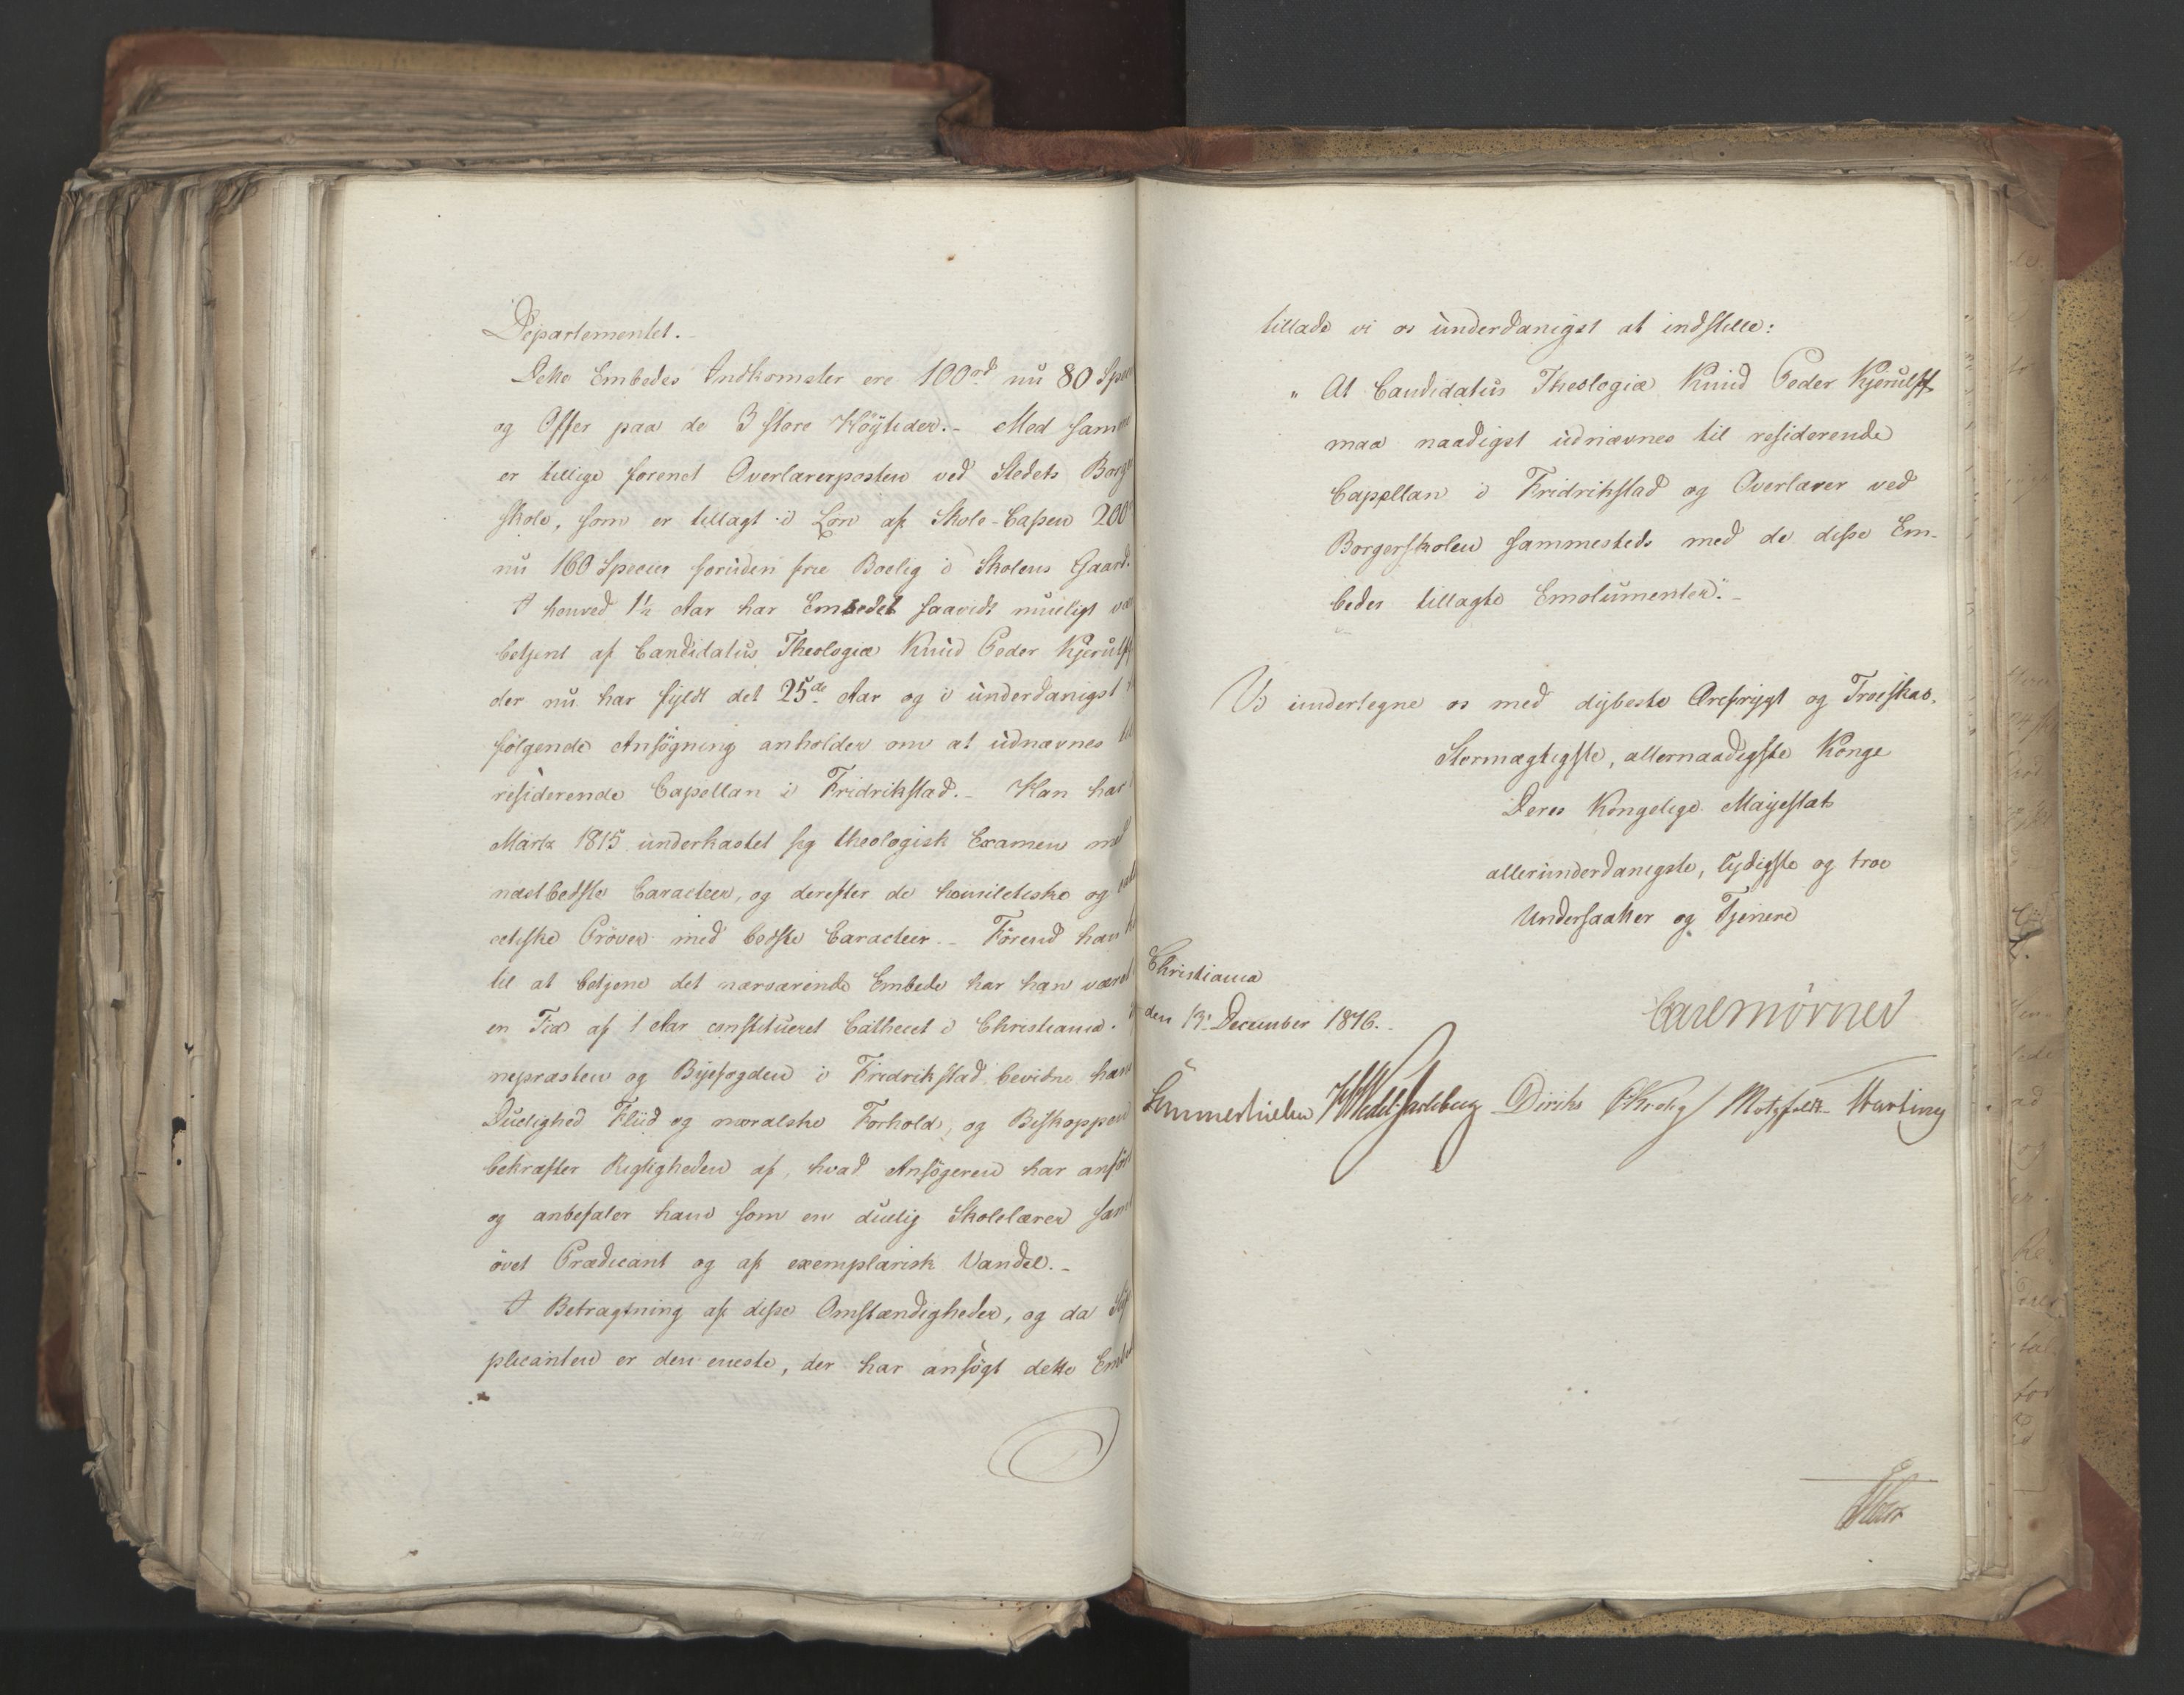 Departementet.
Dette Embedes Indkomster ere 100rd nu 80 Speci
og Offer paa de 3 store Höÿtider. - Med samme
er tillige forenet Overlærerposten ved Stedets Borger
skole, som er tillagt i Lön af Skole-Cassen 200
nu 160 Specier foruden frie Boelig i Skolens Gaard.
I henved 1½ Aar har Embedet saavidt mueligt vær
betjent af Candidatus Theologiæ Knud Peder Kjerulff
der nu har fyldt det 25de Aar og i underdanigst
følgende Ansögning anholder om at udnævnes til
residerende Capellan i Fridrikstad. - Han har
Martz 1815 underkastet sig theologisk Examen med
næstbedste Caracteer, og derefter de homiletiske og cate
cetiske Pröver med bedste Caracteer. - Förend han
til at betjene det nærværende Embede har han været
en Tid af 1 Aar constitueret Cathecet i Christiania.
neprosten og Byefogden i Fridrikstad bevidne hans
Duelighed Fliid og moralske Forhold, og Biskoppen
bekræfter Rigtigheden af, hvad Ansögeren har anfört
og anbefaler ham som en duelig Skolelærer samt
övet Prædicant og af exemplarisk Vandel. -
I Betragtning af disse Omstændigheder, og da Sup
plicanten er den eneste, der har ansögt dette Embed
tillade vi os underdanigst at indstille:
" At Candidatus Theologiæ Knud Peder Kjerulff
maa naadigst udnævnes til residerende
Capellan i Fridrikstad og Overlærer ved
Borgerskolen sammesteds med de disse Em-
beder tillagte Emolumenter." -
Vi undertegne os med dybeste Ærefrygt og Troeskab.
Stormægtigste, allernaadigste Konge
Deres Kongelige Majestæts
allerunderdanigste, lydigste og troe
Undersaatter og Tjenere
Christiania
den 13. December 1816.
Carl Mörner
Sommerhielm Wedel-Jarlsberg Diriks Krohg Motzfeldt